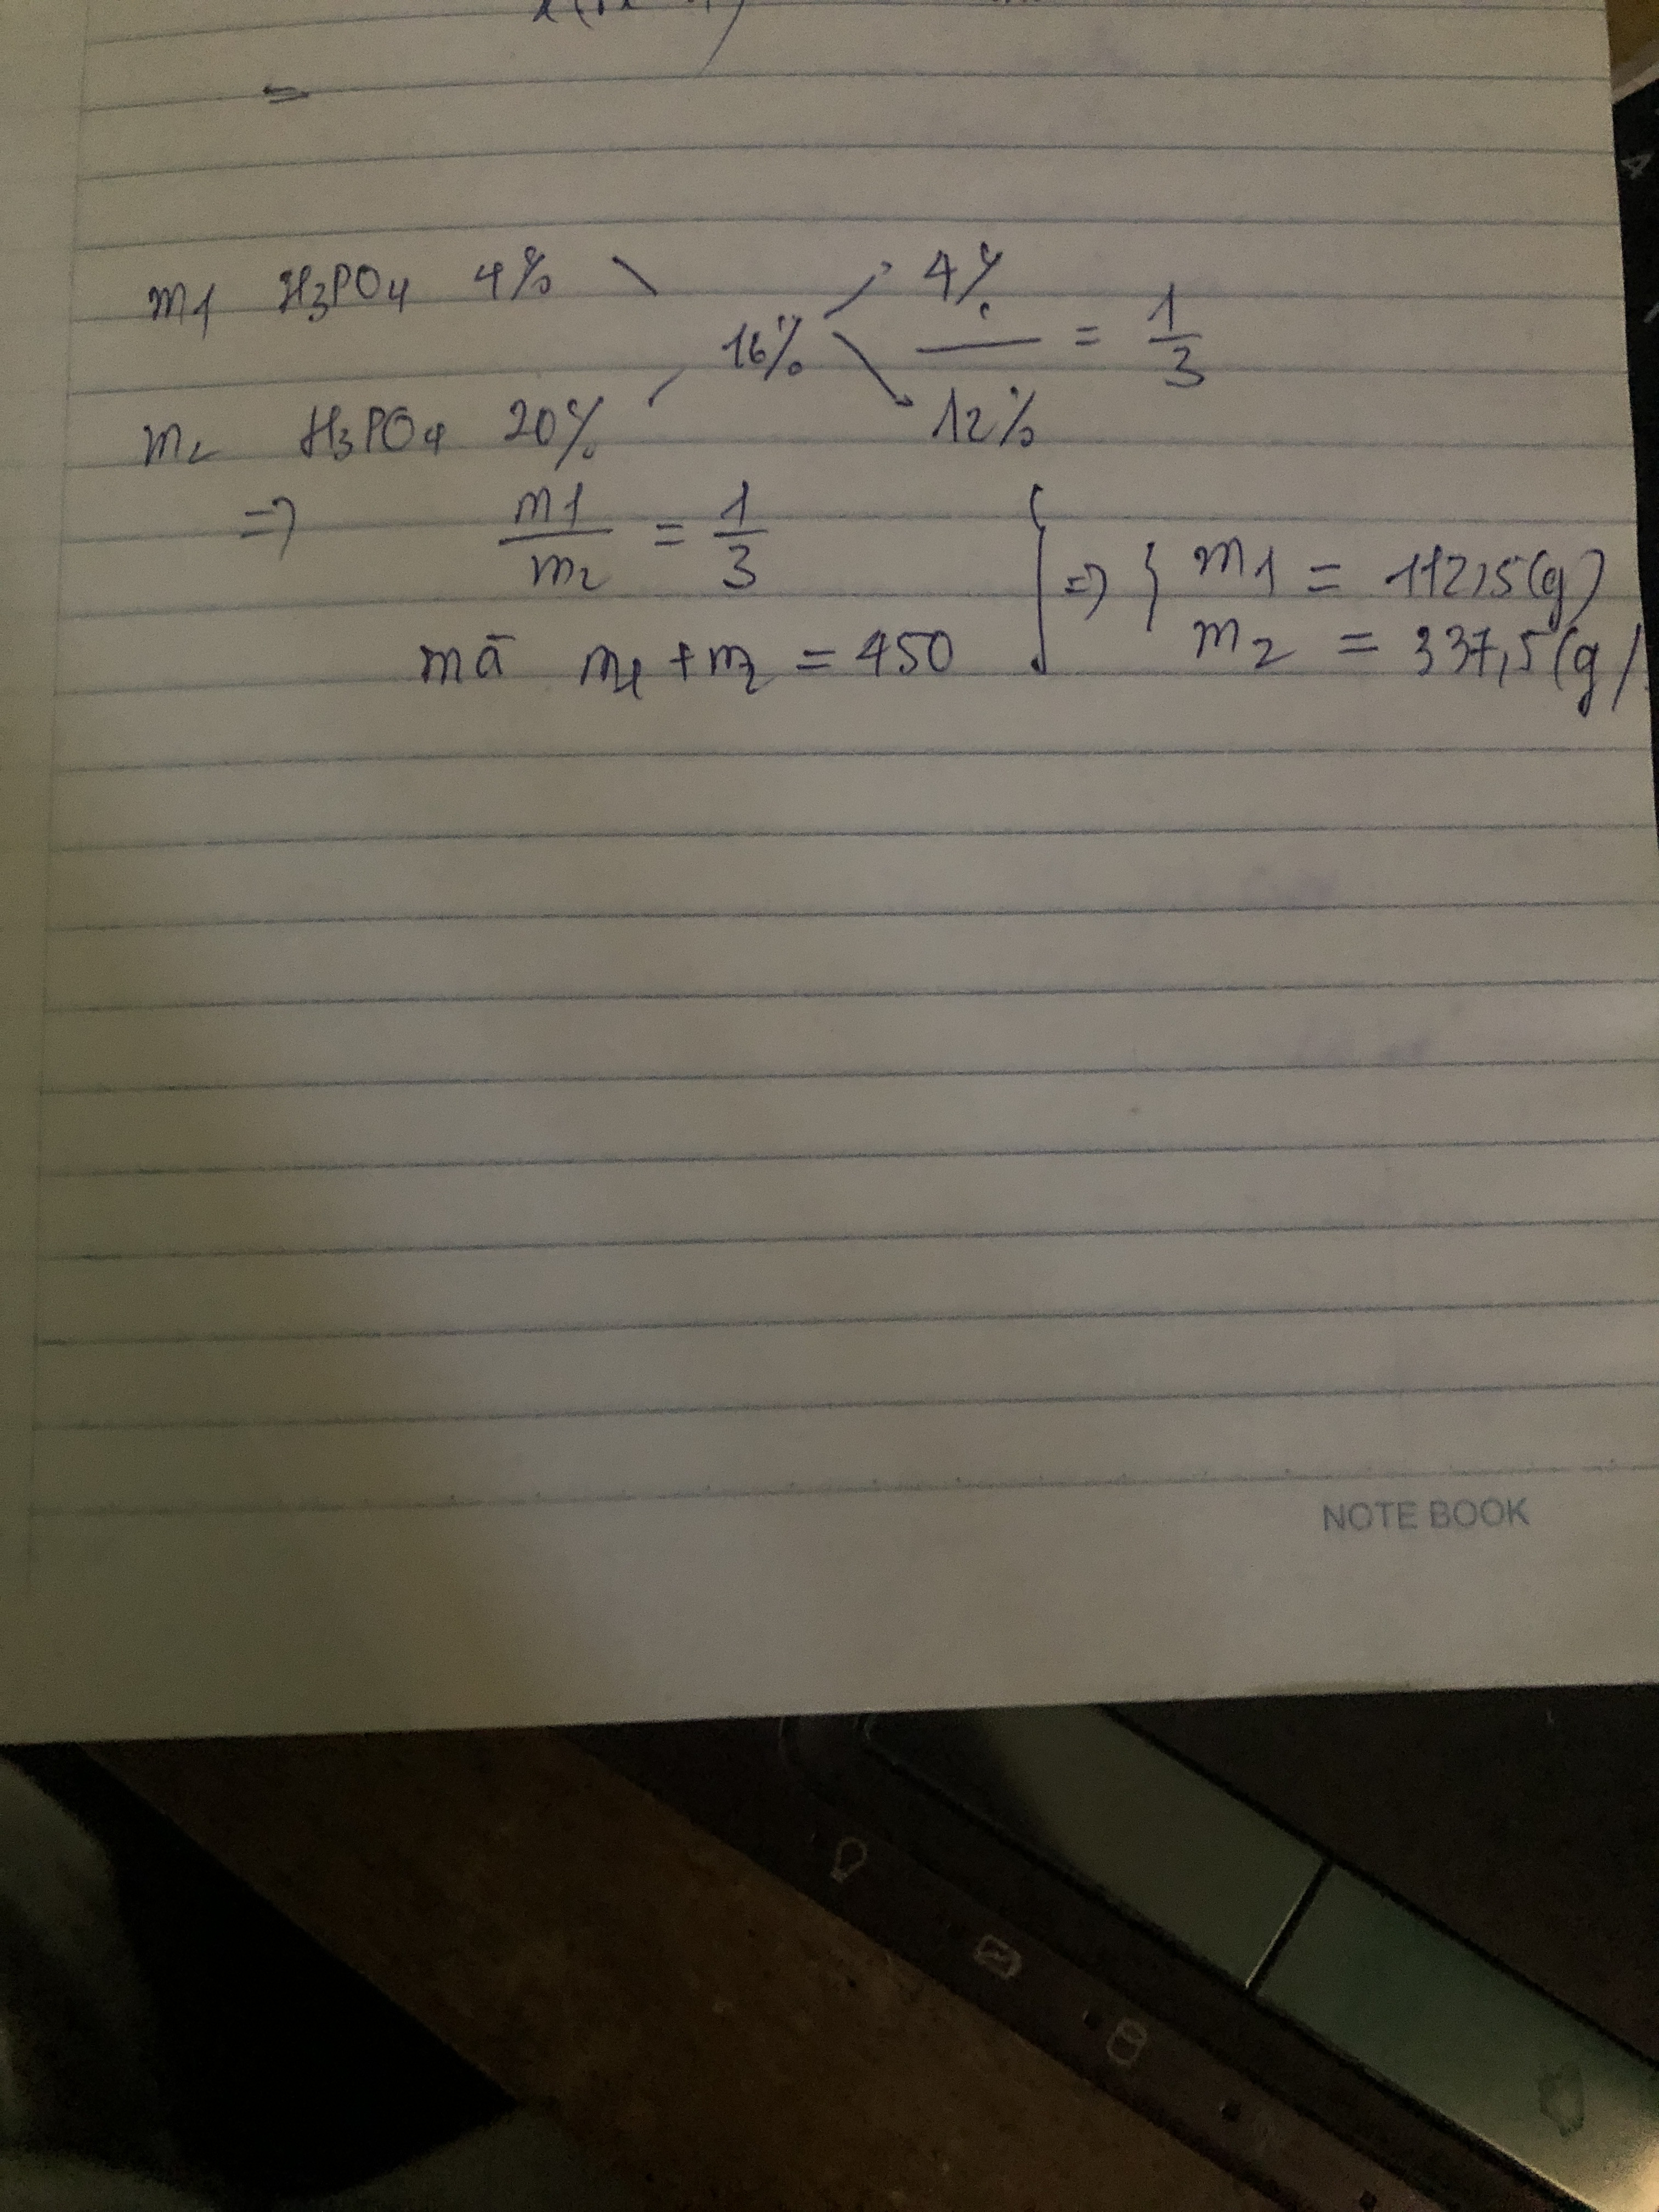 m1 H3PO4 4% 4%
16% = 1/3
m2 H3PO4 20% 12%
=> m1/m2 = 1/3
mà m1 + m2 = 450
=> { m1 = 112,5(g)
m2 = 337,5(g)
NOTE BOOK
4